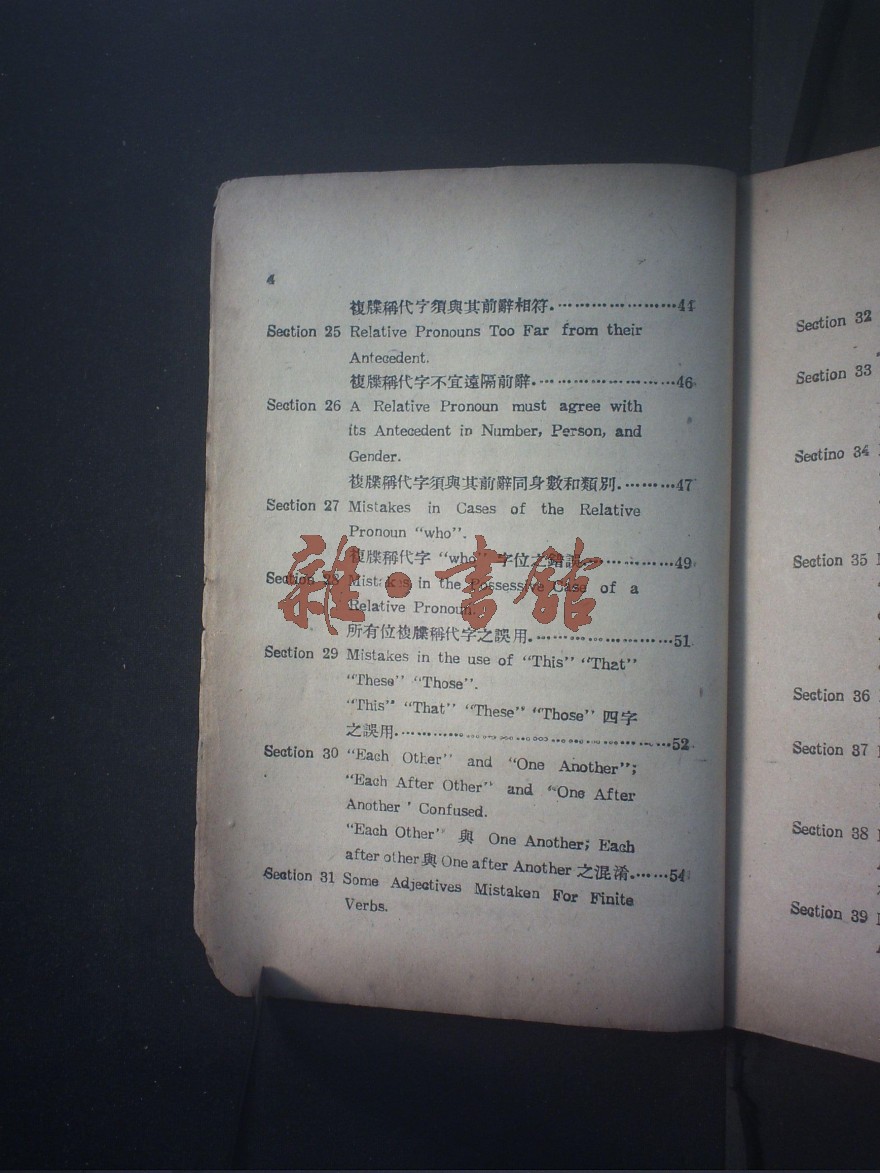 4
複牒稱代字須與其前辭相符.……………………44
Section 25 Relative Pronouns Too Far from their
Antecedent.
複牒稱代字不宜遠隔前辭.………………………46
Section 26 A Relative Pronoun must agree with
its Antecedent in Number, Person, and
Gender.
複牒稱代字須與其前辭同身數和類別.………47
Section 27 Mistakes in Cases of the Relative
Pronoun “who”.
複牒稱代字 “who” 字位之錯誤.………………49
Section 28 Mistakes in the Possessive Case of a
Relative Pronoun.
所有位複牒稱代字之誤用.………………………51
Section 29 Mistakes in the use of “This” “That”
“These” “Those”.
“This” “That” “These” “Those” 四字
之誤用.………………………………………………52
Section 30 “Each Other” and “One Another”;
“Each After Other” and “One After
Another ’ Confused.
“Each Other” 與 One Another; Each
after other 與 One after Another 之混淆.……54
Section 31 Some Adjectives Mistaken For Finite
Verbs.
雜·書館
Section 32
Section 33
Sectino 34
Section 35
Section 36
Section 37
Section 38
Section 39